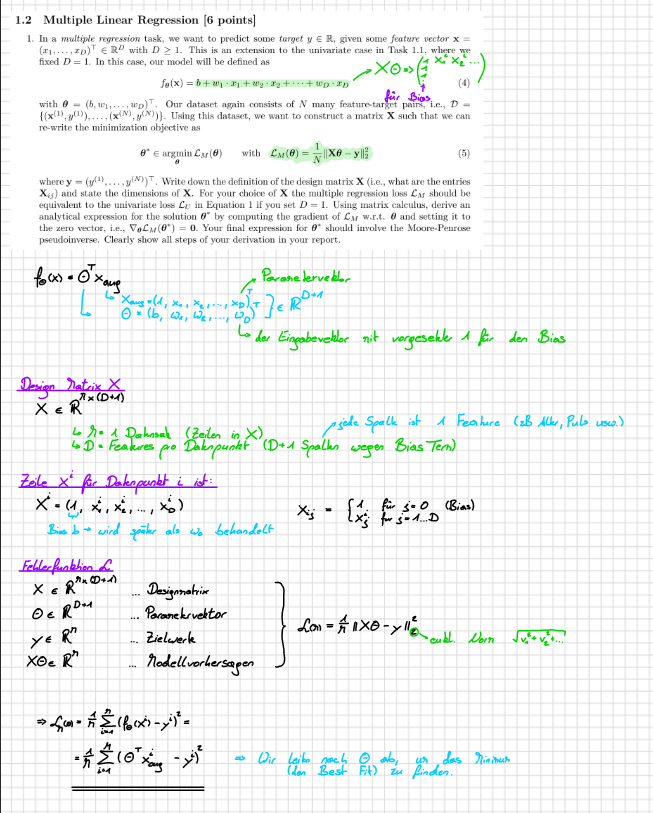 1.2 Multiple Linear Regression [6 points]
1. In a multiple regression task, we want to predict some target y ∈ ℝ, given some feature vector x =
(x₁, . . . , x_D)^⊤ ∈ ℝ^D with D ≥ 1. This is an extension to the univariate case in Task 1.1, where we
fixed D = 1. In this case, our model will be defined as
f_θ(x) = b + w₁ · x₁ + w₂ · x₂ + · · · + w_D · x_D (4)
XΘ =>
für Bias
with θ = (b, w₁, . . . , w_D)^⊤. Our dataset again consists of N many feature-target pairs, i.e., 𝒟 =
{(x^(1), y^(1)), . . . , (x^(N), y^(N))}. Using this dataset, we want to construct a matrix X such that we can
re-write the minimization objective as
θ* ∈ argmin_θ ℒ_M(θ) with ℒ_M(θ) = 1/N ||Xθ − y||²₂ (5)
where y = (y^(1), . . . , y^(N))^⊤. Write down the definition of the design matrix X (i.e., what are the entries
X_ij) and state the dimensions of X. For your choice of X the multiple regression loss ℒ_M should be
equivalent to the univariate loss ℒ_U in Equation 1 if you set D = 1. Using matrix calculus, derive an
analytical expression for the solution θ* by computing the gradient of ℒ_M w.r.t. θ and setting it to
the zero vector, i.e., ∇_θℒ_M(θ*) = 0. Your final expression for θ* should involve the Moore-Penrose
pseudoinverse. Clearly show all steps of your derivation in your report.
f_Θ(x) = Θ^T x_aug
Parametervektor
x_aug = (1, x₁, x₂, ..., x_D)^T
Θ = (b, ω₁, ω₂, ..., ω_D)^T } ∈ ℝ^(D+1)
der Eingabevektor mit vorgesetzter 1 für den Bias
Design Matrix X
X ∈ ℝ^(n×(D+1))
jede Spalte ist 1 Feature (zB Alter, Puls usw.)
n = 1 Datensatz (Zeilen in X)
D = Features pro Datenpunkt (D+1 Spalten wegen Bias Term)
Zeile X^i für Datenpunkt i ist:
X^i = (1, x₁^i, x₂^i, ..., x_D^i)
X_ij = { 1 für j=0 (Bias)
x_j^i für j=1...D
Bias b → wird später als w₀ behandelt
Fehlerfunktion ℒ
X ∈ ℝ^(n×(D+1)) ... Designmatrix
Θ ∈ ℝ^(D+1) ... Parametervektor
y ∈ ℝ^n ... Zielwerte
XΘ ∈ ℝ^n ... Modellvorhersagen
ℒ(Θ) = 1/n ||XΘ − y||²₂
eukl. Norm √(v₁² + v₂² + ...)
⇒ ℒ(Θ) = 1/n Σ_{i=1}^n (f_Θ(x^i) − y^i)² =
= 1/n Σ_{i=1}^n (Θ^T x_aug^i − y^i)²
⇒ Wir leiten nach Θ ab, um das Minimum
(den Best Fit) zu finden.